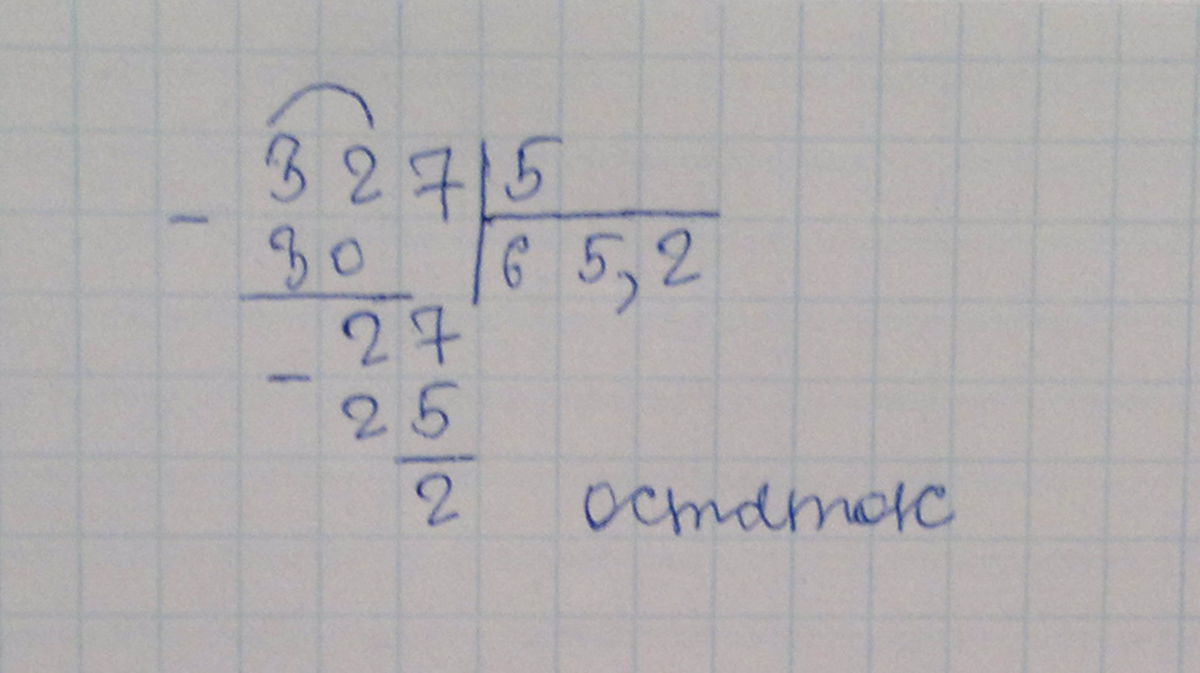 327 5
- 30 65,2
27
- 25
2 остаток